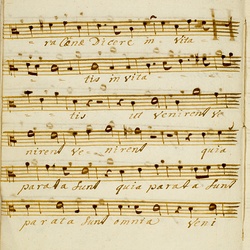 ra Cene Dicere in vita
tis in vita
tis ut venirent ve
nirent ve nirent quia
parata Sunt quia parata Sunt
parata Sunt omnia veni